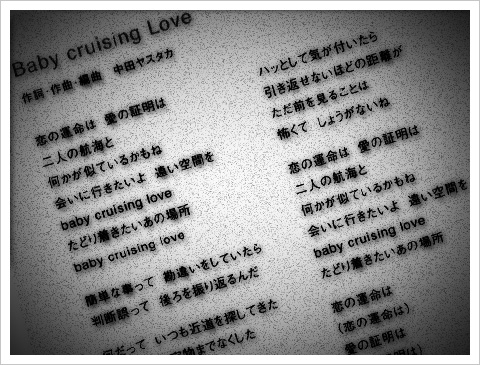 Baby cruising Love
作詞・作曲・編曲　中田ヤスタカ
恋の運命は　愛の証明は
二人の航海と
何かが似ているかもね
会いに行きたいよ　遠い空間を
baby cruising love
たどり着きたいあの場所
baby cruising love
簡単な事って　勘違いをしていたら
判断誤って　後ろを振り返るんだ
何だって　いつも近道を探してきた
宝物までなくした
ハッとして気が付いたら
引き返せないほどの距離が
ただ前を見ることは
怖くて　しょうがないね
恋の運命は　愛の証明は
二人の航海と
何かが似ているかもね
会いに行きたいよ　遠い空間を
baby cruising love
たどり着きたいあの場所
恋の運命は
（恋の運命は）
愛の証明は